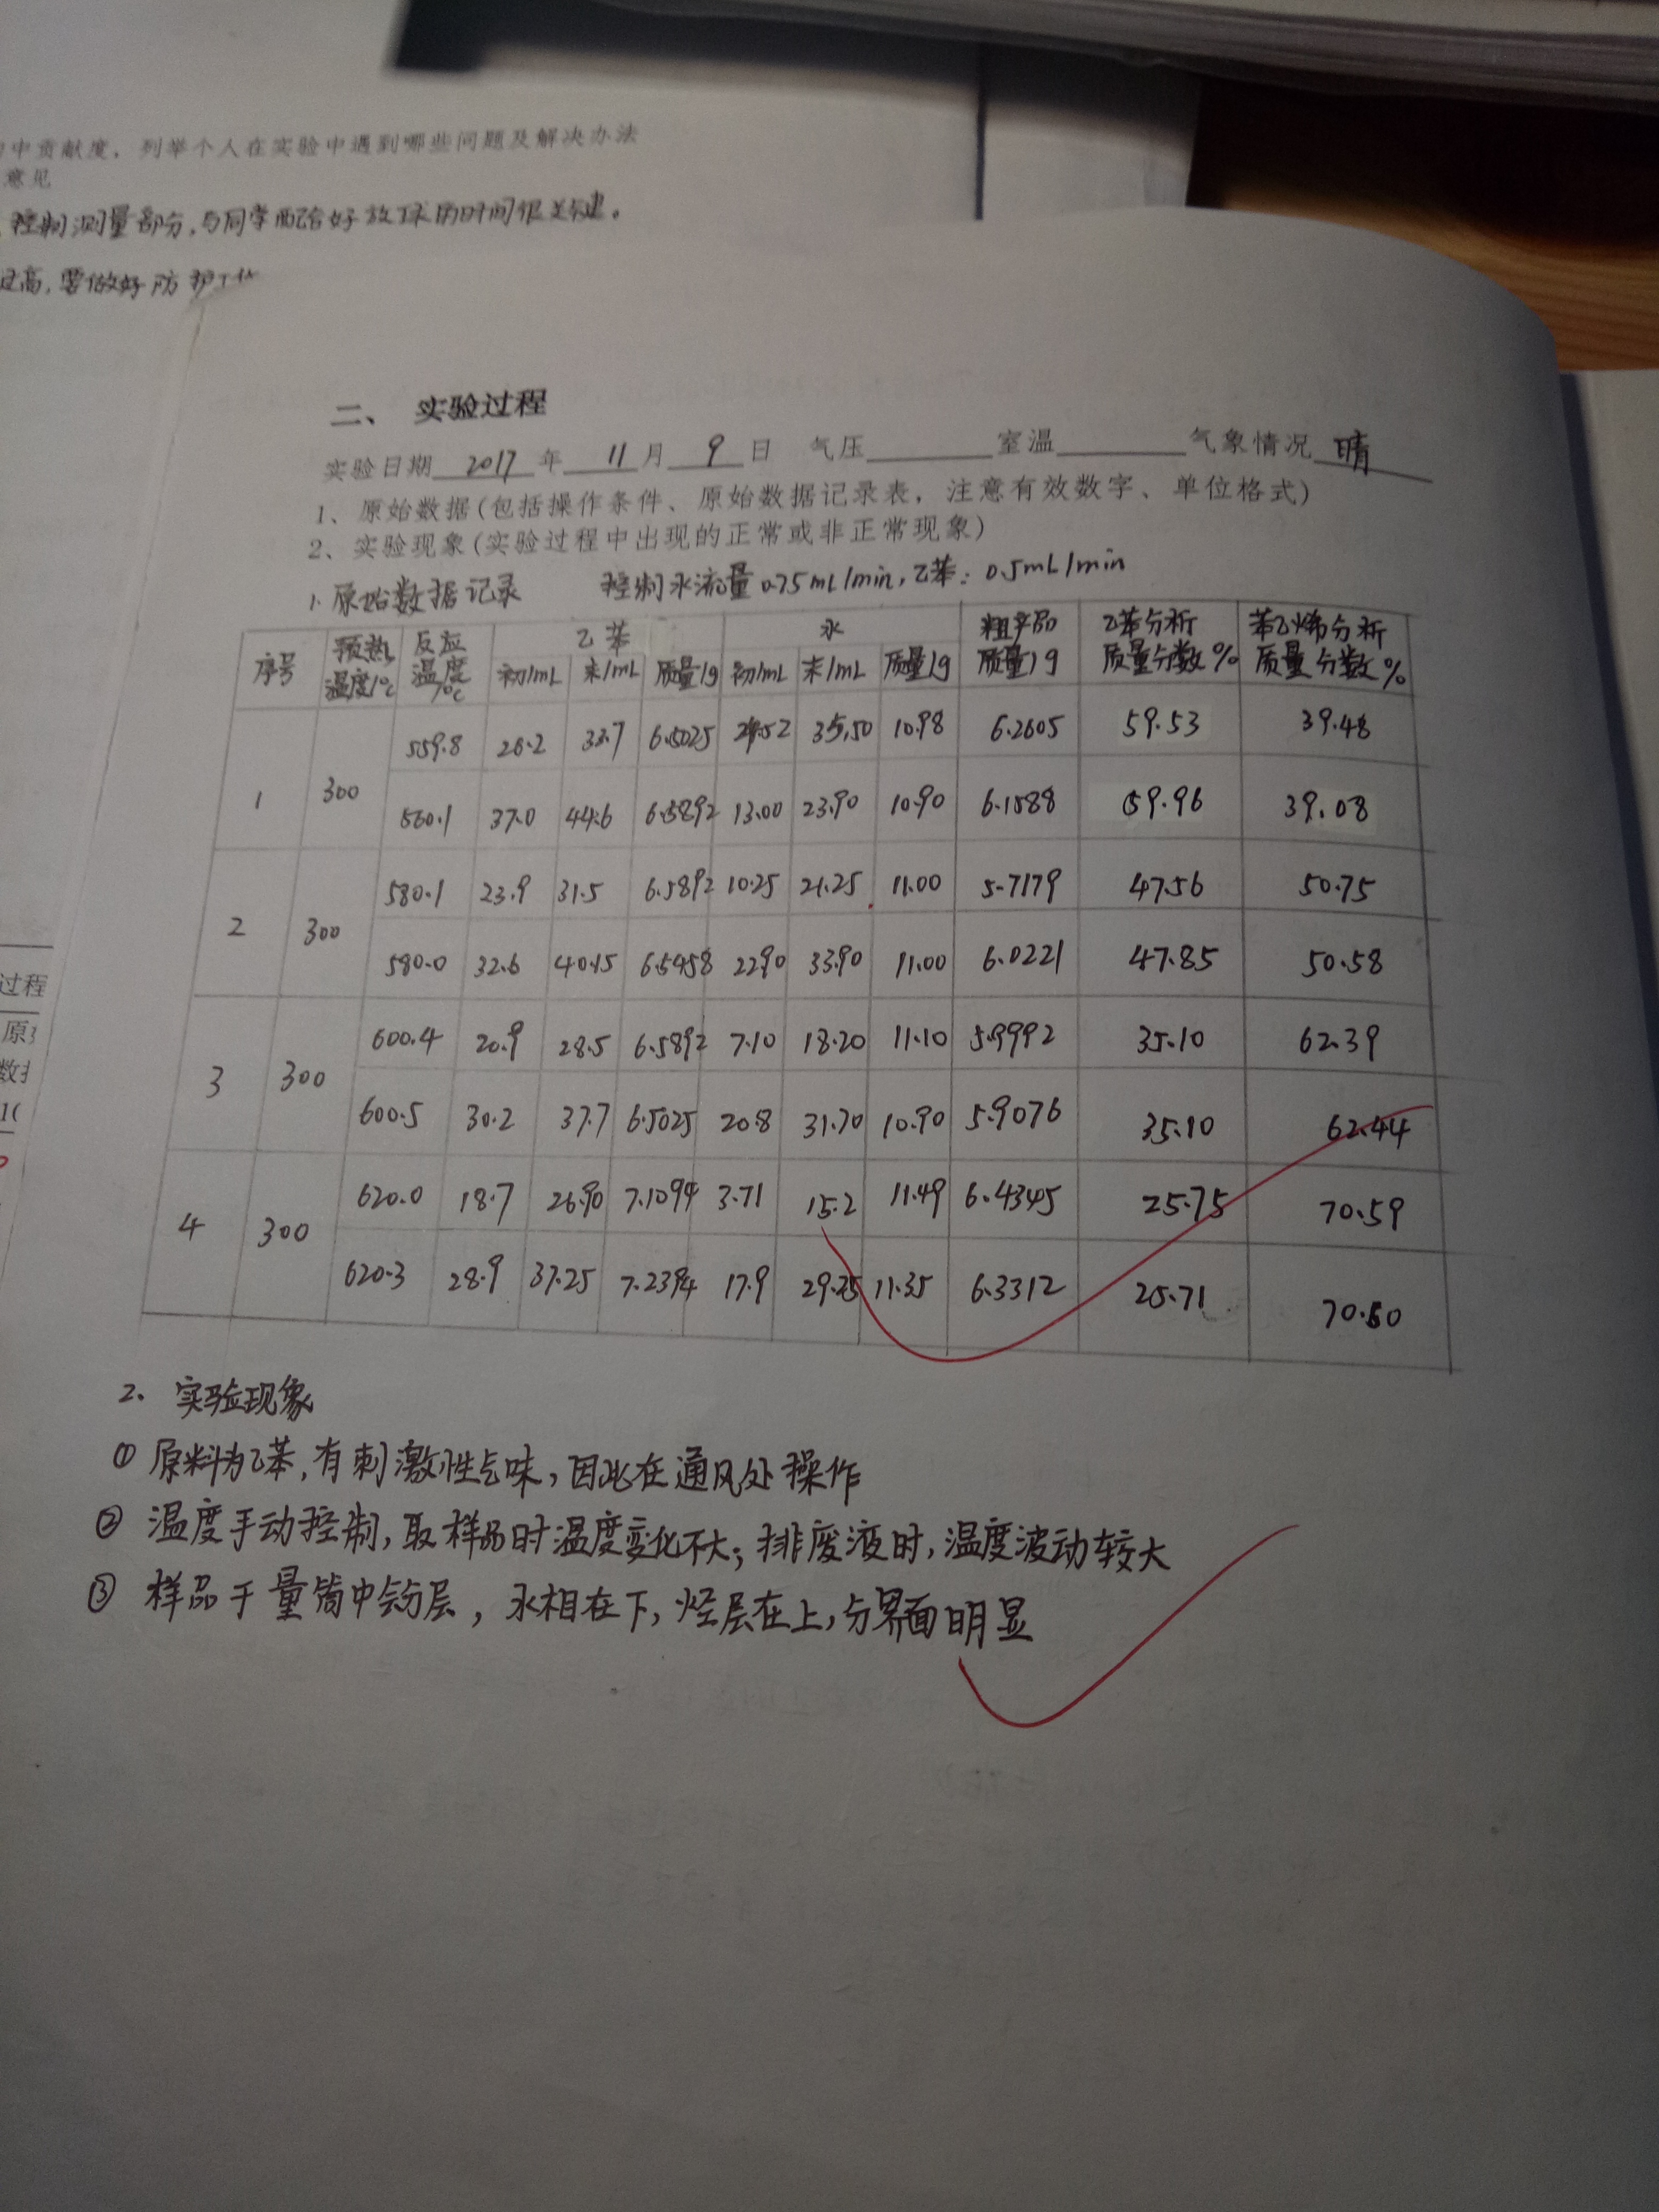 中贡献度，列举个人在实验中遇到哪些问题及解决办法
意见
控制测量部分，与同学配合好放球的时间很关键。
过高，要做好防护工作
二、 实验过程
实验日期 2017 年 11 月 9 日 气压 室温 气象情况 晴
1、原始数据(包括操作条件、原始数据记录表，注意有效数字、单位格式)
2、实验现象(实验过程中出现的正常或非正常现象)
1. 原始数据记录 控制水流量0.75mL/min，乙苯：0.5mL/min
序号 预热温度/℃ 反应温度/℃ 乙苯 水 粗产品质量/g 乙苯分析质量分数% 苯乙烯分析质量分数%
初/mL 末/mL 质量/g 初/mL 末/mL 质量/g
1 300 559.8 26.2 33.7 6.5025 24.52 35.50 10.98 6.2605 59.53 39.48
560.1 37.0 44.6 6.5892 13.00 23.90 10.90 6.1588 59.96 39.08
2 300 580.1 23.9 31.5 6.5892 10.25 21.25 11.00 5.7179 47.56 50.75
580.0 32.6 40.15 6.5458 22.90 33.90 11.00 6.0221 47.85 50.58
3 300 600.4 20.9 28.5 6.5892 7.10 18.20 11.10 5.9992 35.10 62.39
600.5 30.2 37.7 6.5025 20.8 31.70 10.90 5.9076 35.10 62.44
4 300 620.0 18.7 26.90 7.1094 3.71 15.2 11.49 6.4345 25.75 70.59
620.3 28.9 37.25 7.2394 17.9 29.25 11.35 6.3312 25.71 70.60
2. 实验现象
① 原料为乙苯，有刺激性气味，因此在通风处操作
② 温度手动控制，取样品时温度变化不大；排废液时，温度波动较大
③ 样品于量筒中会分层，水相在下，烃层在上，分界面明显
过程
原
数据